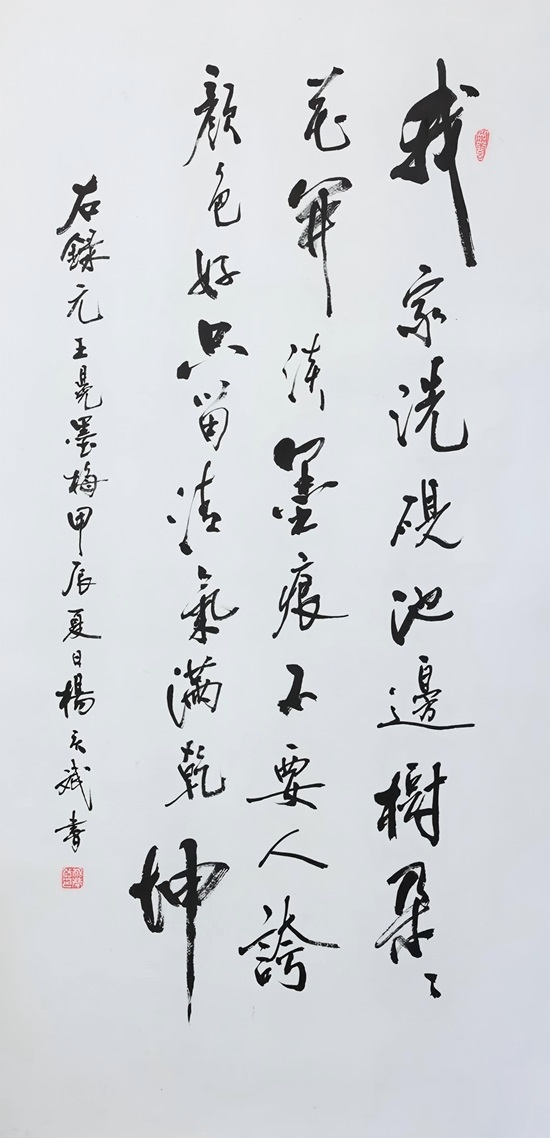 我家洗硯池邊樹朵々
花開淡墨痕不要人誇
顏色好只留清氣滿乾坤
右錄元王冕墨梅甲辰夏日楊斌書